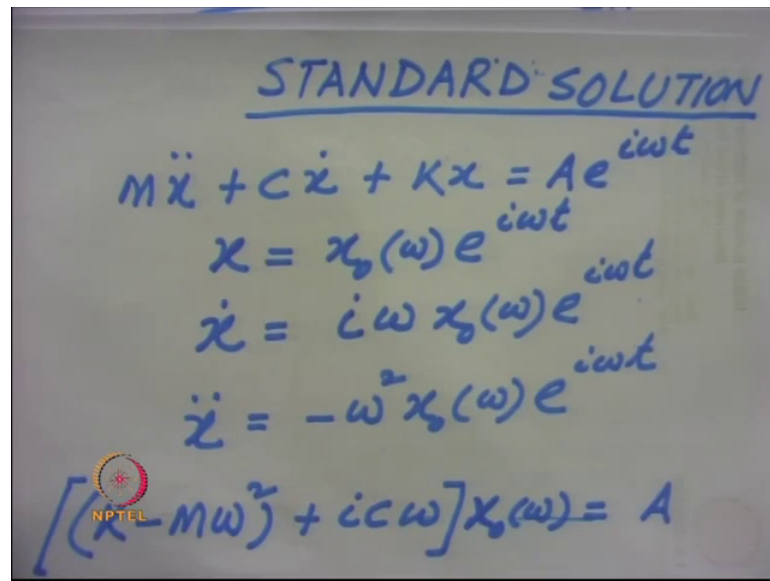 STANDARD SOLUTION
mẍ + cẋ + Kx = Ae^{iωt}
x = x₀(ω)e^{iωt}
ẋ = iω x₀(ω)e^{iωt}
ẍ = -ω² x₀(ω)e^{iωt}
[(K-mω²) + icω]x₀(ω) = A
NPTEL